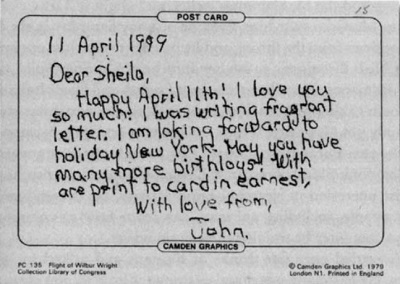 18
POST CARD
11 April 1999
Dear Sheila,
Happy April 11th! I love you
so much! I was writing fragrant
letter. I am loking forward to
holiday New York. May you have
many more birthloys! With
are print to card in earnest,
With love from,
John.
CAMDEN GRAPHICS
PC 135 Flight of Wilbur Wright
Collection Library of Congress
© Camden Graphics Ltd 1979
London N1. Printed in England